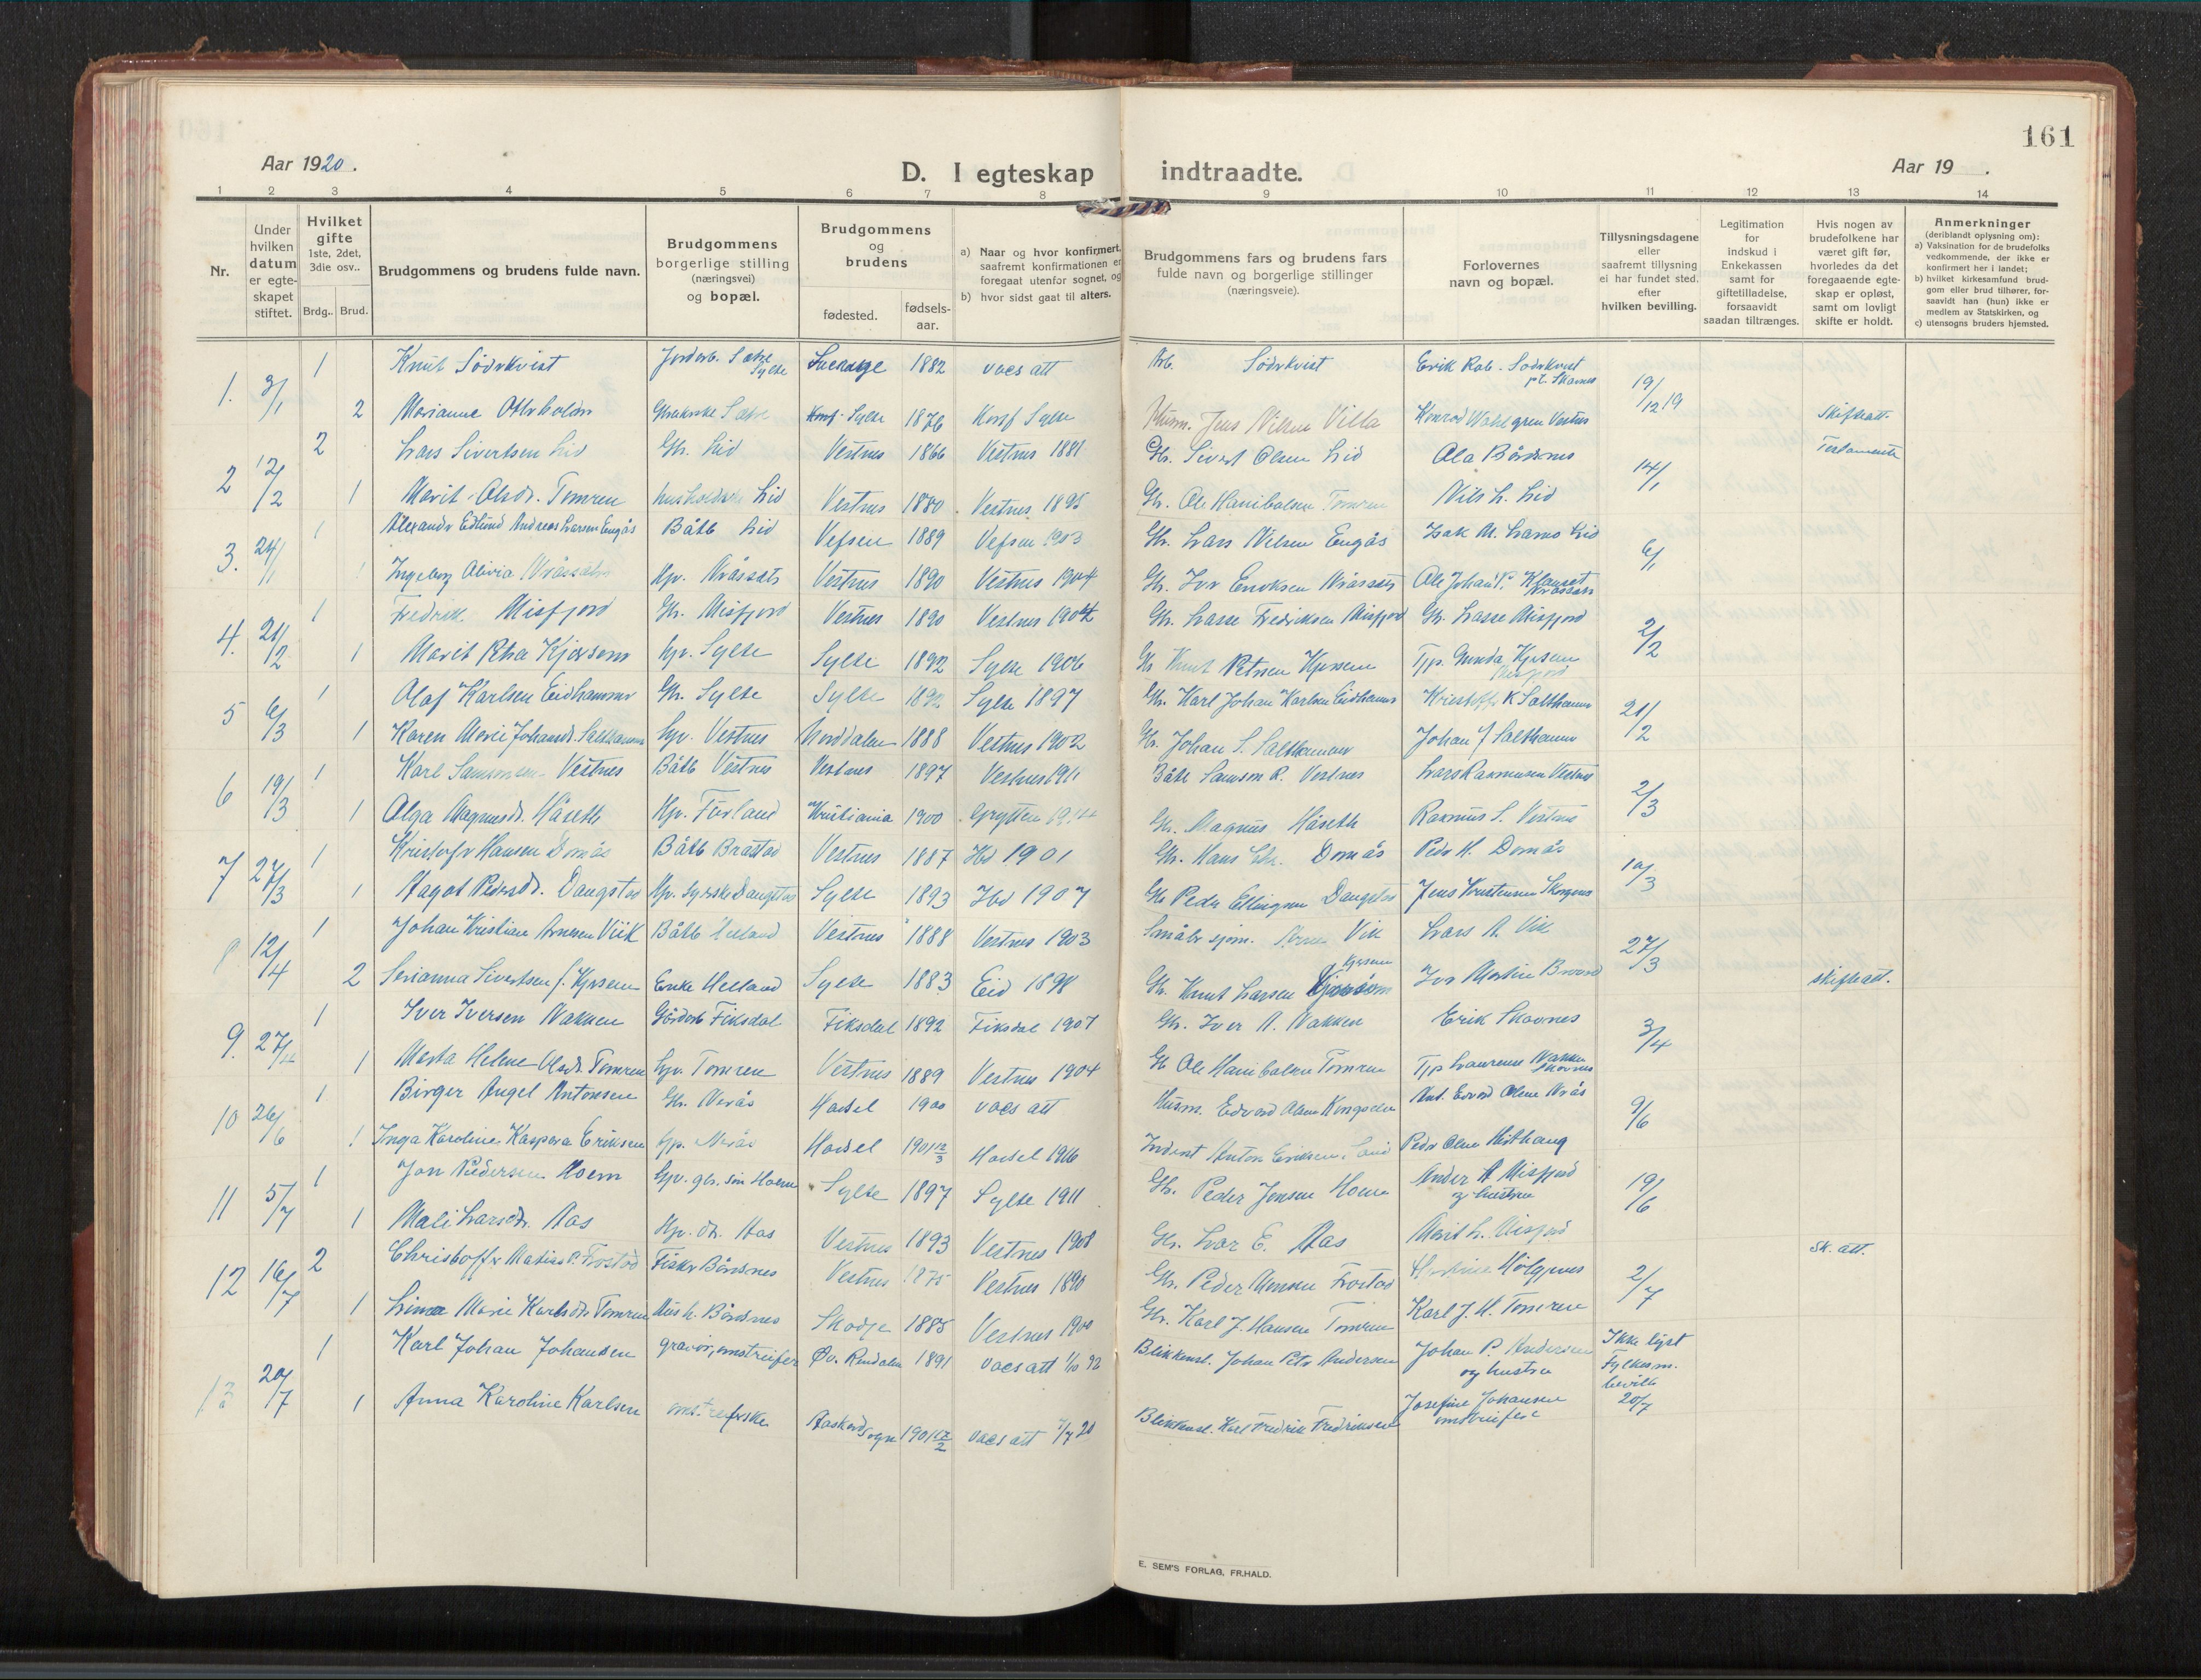 161
Aar 1920.
D. I egteskap indtraadte.
Aar 19 .
1 2 3 4 5 6 7 8 9 10 11 12 13 14
Nr.
Under hvilken datum er egteskapet stiftet.
Hvilket gifte 1ste, 2det, 3die osv..
Brdg.. Brud.
Brudgommens og brudens fulde navn.
Brudgommens borgerlige stilling (næringsvei) og bopæl.
Brudgommens og brudens
fødested.
fødselsaar.
a) Naar og hvor konfirmert, saafremt konfirmationen er foregaat utenfor sognet, og
b) hvor sidst gaat til alters.
Brudgommens fars og brudens fars fulde navn og borgerlige stillinger (næringsveie).
Forlovernes navn og bopæl.
Tillysningsdagene eller saafremt tillysning ei har fundet sted, efter hvilken bevilling.
Legitimation for indskud i Enkekassen samt for giftetilladelse, forsaavidt saadan tiltrænges.
Hvis nogen av brudefolkene har været gift før, hvorledes da det foregaaende egteskap er opløst, samt om lovligt skifte er holdt.
Anmerkninger (deriblandt oplysning om):
a) Vaksination for de brudefolks vedkommende, der ikke er konfirmert her i landet;
b) hvilket kirkesamfund brudgom eller brud tilhører, forsaavidt han (hun) ikke er medlem av Statskirken, og
c) utensogns bruders hjemsted.
1. 3/1 1 Knut Södrkvist Sylte 1882 vacs att Arb. Södrkvist Erik Rob. Södrkvist 19/12 19
2 Marianne 1876 Konf Sylte Husm. Jens Nilsen Villa Konrad Wahlgren Vestnes Skifteatt.
2 12/2 2 Lars Sivertsen Lid Gbr. Lid Vestnes 1866 Vestnes 1881 Gbr. Sivert Olsen Lid Ola Bårdsnes 14/1 Testamente
1 Marit Olsdr. Tomren Lid Vestnes 1880 Vestnes 1895 Gbr. Ole Hanibalsen Tomren Nils L. Lid
3. 24/1 1 Alexandr Edlund Andreas Larsen Engås Båtb Lid Vefsen 1889 Vefsen 1903 Gbr. Lars Nilsen Engås Lid 6/1
Ingeborg Olivia Vråssætr Hp. Vråssætr Vestnes 1890 Vestnes 1904 Gbr. Ivr Eriksen Vråssætr Ole Johan P. Klauset
4. 21/2 1 Fredrik Misfjord Gbr. Misfjord Vestnes 1890 Vestnes 1904 Gbr. Lasse Fredriksen Misfjord Gbr. Lasse Misfjord 2/2
1 Marit Petra Kjersem Sylte Sylte 1892 Sylte 1906 Gbr Knut Petrsen Kjersem Tjp. Gunda Kjersem
5 6/3 1 Olaf Karlsen Eidhammer Gbr. Sylte Sylte 1892 Sylte 1897 Gbr. Karl Johan Karlsen Eidhamer Kristoffr K Salthamr 21/2
1 Karen Marie Johansdr. Salthammer Vestnes Norddalen 1888 Vestnes 1902 Gbr. Johan S. Salthammer Johan J Salthammer
6 19/3 1 Karl Samsonsen Vestnes Båtb Vestnes Vestnes 1897 Vestnes 1911 Båtb Samson R. Vestnes Lars Rasmussen Vestnes 2/3
1 Olga Magnusdr. Håseth Hp. Furland Kristiania 1900 Grytten 1914 Gbr. Magnus Håseth Rasmus S. Vestnes
7 27/3 1 Kristofr Hansen Domås Båtb Brastad Vestnes 1887 Ibd 1901 Gbr. Hans Domås Pedr H. Domås 10/3
1 Magot Pedrsdr. Daugstad Sylte 1893 Ibd 1907 Gbr Pedr Ellingsen Daugstad Jens Kristensen
8 12/4 1 Johan Kristian Arnesen Viik Båtb Helland Vestnes 1888 Vestnes 1903 Småbr sjøm. Arne Vik Lars A. Vik 27/3
2 Serianna Sivertsen f. Kjersem Enke Helland Sylte 1883 Eid 1898 Gbr. Knut Larsen Kjersem Ivr Martin skifteatt.
9. 27/4 1 Iver Iversen Nakken Fiksdal Fiksdal 1892 Fiksdal 1907 Gbr. Iver A. Nakken Erik Skovnes 3/4
1 Marta Helene Olsdr. Tomren Tomren Vestnes 1889 Vestnes 1904 Gb Ole Hanibalsen Tomren Tjp Laurense Nakken
10 26/6 1 Birger Angel Antonsen Gbr. Vrås Hadsel 1900 vacs att Husm. Edvard Olsen Ant. Edvard Olsen Vrås 9/6
1 Inga Karoline Kaspara Eriksen Hadsel 1901 12/3 Hadsel 1916 Inderst Anton Eriksen Pedr Olsen
11 5/7 1 Jon Pedersen Hoem Hoem Sylte 1897 Sylte 1911 Gbr. Peder Jonsen Hoem Ander A Misfjord og hustru 19/6
1 Mali Larsdr. Aas Aas Vestnes 1893 Vestnes 1908 Gbr. Lars E. Aas Marit L. Misfjord
12 16/7 2 Christoffr Matias P. Frostad Fiskr Bårdsnes Vestnes 1875 Vestnes 1890 Gbr. Peder Monsen Frostad 2/7 Sk. att.
1 Marie Karlsdr Tomren Hush. Bårdsnes Skodje 1885 Vestnes 1900 Gbr. Karl J. Hansen Tomren Karl J. H. Tomren
13 20/7 1 Karl Johan Johansen gravør, omstreifer Øv. Rendalen 1891 vacs att 1/10 92 Blikkensl. Johan Petr Andersen Johan P. Andersen og hustru Ikke lyst Fylkesm. bevilg 20/7
1 Anna Karoline Karlsen omstreiferske sogn 1901 17/2 vacs att 7/7 20 Blikkensl. Karl Fredrik Fredriksen Josefine Johansen
E. SEM'S FORLAG, FR.HALD.